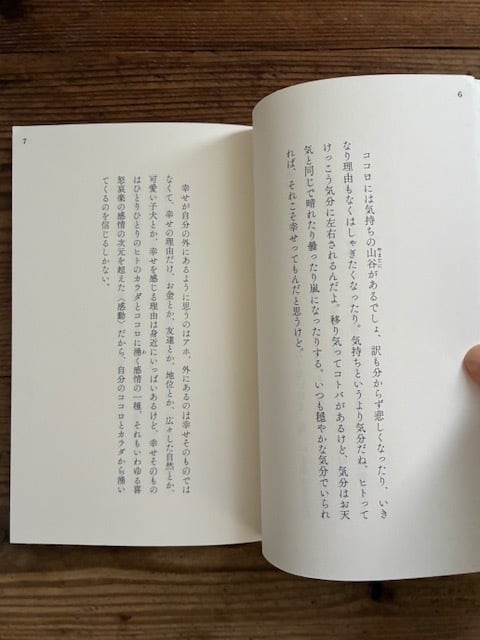 6
ココロには気持ちの山谷があるでしょ、訳も分からず悲しくなったり、いき
なり理由もなくはしゃぎたくなったり。気持ちというより気分だね、ヒトって
けっこう気分に左右されるんだよ。移り気ってコトバがあるけど、気分はお天
気と同じで晴れたり曇ったり嵐になったりする。いつも穏やかな気分でいられ
れば、それこそ幸せってもんだと思うけど。
7
幸せが自分の外にあるように思うのはアホ、外にあるのは幸せそのものでは
なくて、幸せの理由だけ。お金とか、友達とか、地位とか、広々した自然とか、
可愛い子犬とか、幸せを感じる理由は身近にいっぱいあるけど、幸せそのもの
はひとりひとりのヒトのカラダとココロに湧く感情の一種、それもいわゆる喜
怒哀楽の感情の次元を超えた〈感動〉だから、自分のココロとカラダから湧い
てくるのを信じるしかない。